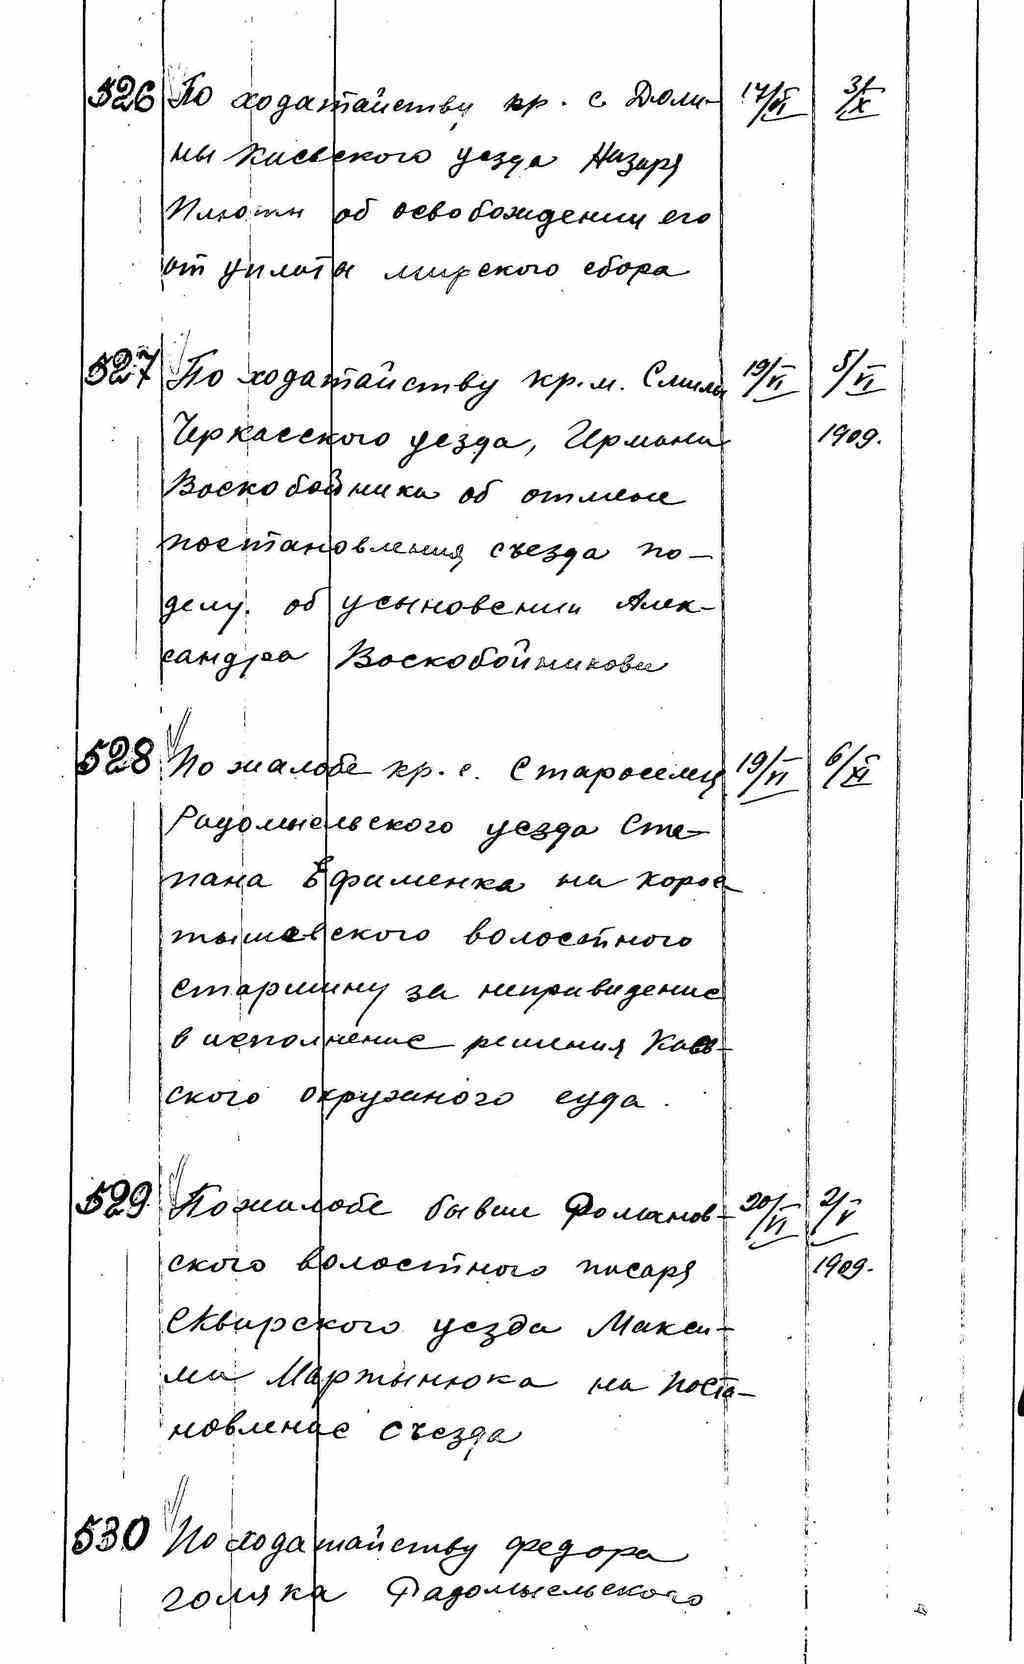 526 По ходатайству кр. с. Доли- 17/VI 31/X
ны Киевского уезда Назара
Плюты об освобождении его
от уплаты мирского сбора
527 По ходатайству кр. м. Смелы 19/VI 5/VI
Черкасского уезда, Германа 1909.
Воскобойника об отмене
постановления съезда по-
делу. об усыновении Алек-
сандра Воскобойникова
528 По жалобе кр. с. Староселец 19/VI 6/XI
Радомысльского уезда Сте-
пана Ефименка на корос-
тышевского волостного
старшину за неприведение
в исполнение решения Киев-
ского окружного суда.
529 По жалобе бывш Романов- 20/VI 2/V
ского волостного писаря 1909.
Сквирского уезда Макси-
ма Мартынюка на поста-
новление съезда
530 По ходатайству Федора
Голяка Радомысльского